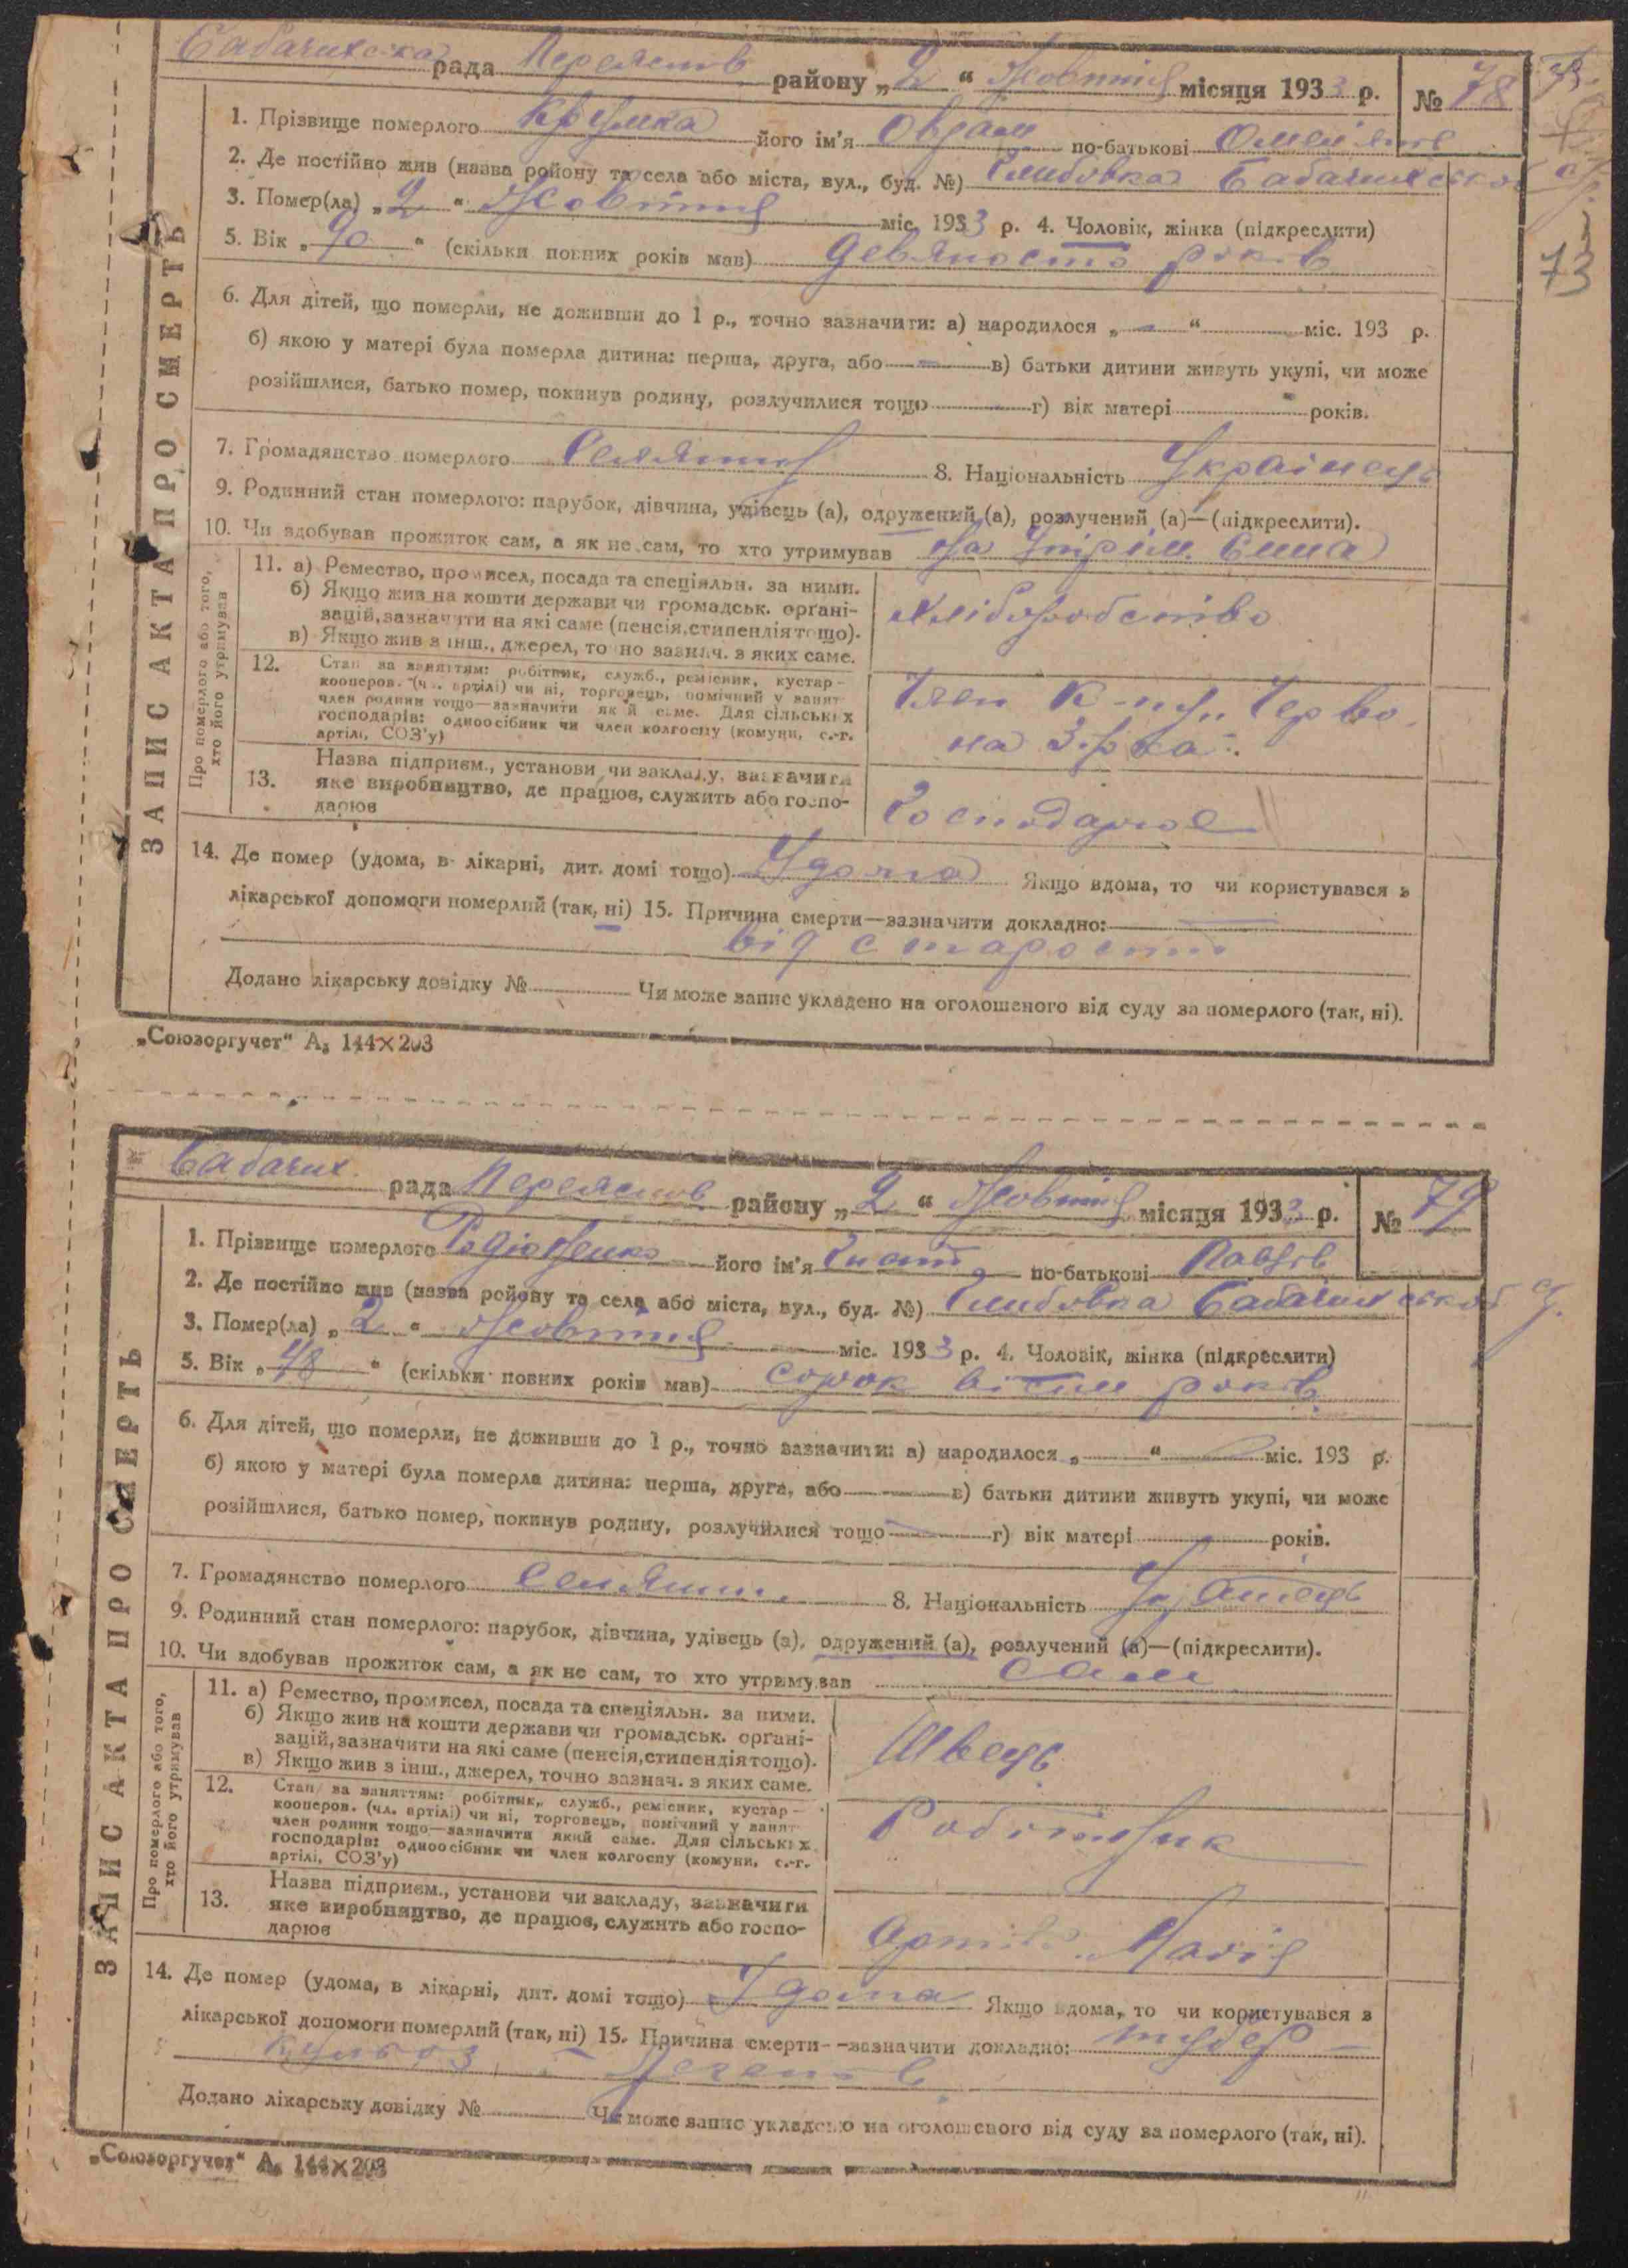 Бабачихська рада Переяслів району „2“ Жовтня місяця 1933 р. № 78
73
1. Прізвище померлого його ім'я по-батькові
2. Де постійно жив (назва ройону та села або міста, вул., буд. №)
3. Помер(ла) „2“ Жовтня міс. 1933 р. 4. Чоловік, жінка (підкреслити)
5. Вік „90“ (скільки повних років мав) девяносто років
6. Для дітей, що померли, не доживши до 1 р., точно зазначити: а) народилося „ “ міс. 193 р.
б) якою у матері була померла дитина: перша, друга, або в) батьки дитини живуть укупі, чи може
розійшлися, батько помер, покинув родину, розлучилися тощо г) вік матері років.
7. Громадянство померлого Селянин 8. Національність Українець
9. Родинний стан померлого: парубок, дівчина, удівець (а), одружений (а), розлучений (а)—(підкреслити).
10. Чи здобував прожиток сам, а як не сам, то хто утримував на утрім. Сина
ЗАПИС АКТА ПРО СМЕРТЬ
Про померлого або того, хто його утримував
11. а) Ремество, промисел, посада та спеціяльн. за ними.
б) Якщо жив на кошти держави чи громадськ. орґані-
зацій, зазначити на які саме (пенсія, стипендія тощо).
в) Якщо жив з інш., джерел, точно зазнач. з яких саме.
хліборобство
12. Стан за заняттям: робітник, служб., ремісник, кустар—
кооперов. (чл. артілі) чи ні, торговець, помічний у занят
член родини тощо—зазначити який саме. Для сільських
господарів: одноосібник чи член колгоспу (комуни, с.-г.
артілі, СОЗ'у)
Член Черво
на Зірка
13. Назва підприєм., установи чи закладу, зазначити
яке виробництво, де працює, служить або госпо-
дарює
Господарює
14. Де помер (удома, в лікарні, дит. домі тощо) Удома Якщо вдома, то чи користувався з
лікарської допомоги померлий (так, ні) 15. Причина смерти—зазначити докладно:
від старости
Додано лікарську довідку № Чи може запис укладено на оголошеного від суду за померлого (так, ні).
„Союзоргучет“ А₅ 144×203
Бабачих. рада Переяслів району „2“ Жовтня місяця 1933 р. № 79
1. Прізвище померлого Радіоненко його ім'я Гнат по-батькові Павлов
2. Де постійно жив (назва ройону та села або міста, вул., буд. №)
3. Помер(ла) „2“ Жовтня міс. 1933 р. 4. Чоловік, жінка (підкреслити)
5. Вік „48“ (скільки повних років мав) сорок вісім років
6. Для дітей, що померли, не доживши до 1 р., точно зазначити: а) народилося „ “ міс. 193 р.
б) якою у матері була померла дитина: перша, друга, або в) батьки дитини живуть укупі, чи може
розійшлися, батько помер, покинув родину, розлучилися тощо г) вік матері років.
7. Громадянство померлого Селянин 8. Національність
9. Родинний стан померлого: парубок, дівчина, удівець (а), одружений (а), розлучений (а)—(підкреслити).
10. Чи здобував прожиток сам, а як не сам, то хто утримував сам
ЗАПИС АКТА ПРО СМЕРТЬ
Про померлого або того, хто його утримував
11. а) Ремество, промисел, посада та спеціяльн. за ними.
б) Якщо жив на кошти держави чи громадськ. орґані-
зацій, зазначити на які саме (пенсія, стипендія тощо).
в) Якщо жив з інш., джерел, точно зазнач. з яких саме.
Швець
12. Стан за заняттям: робітник, служб., ремісник, кустар—
кооперов. (чл. артілі) чи ні, торговець, помічний у занят
член родини тощо—зазначити який саме. Для сільських
господарів: одноосібник чи член колгоспу (комуни, с.-г.
артілі, СОЗ'у)
Робітник
13. Назва підприєм., установи чи закладу, зазначити
яке виробництво, де працює, служить або госпо-
дарює
Артіль
14. Де помер (удома, в лікарні, дит. домі тощо) Удома Якщо вдома, то чи користувався з
лікарської допомоги померлий (так, ні) 15. Причина смерти—зазначити докладно: тубер-
кульоз Легенів
Додано лікарську довідку № Чи може запис укладено на оголошеного від суду за померлого (так, ні).
„Союзоргучет“ А₅ 144×203